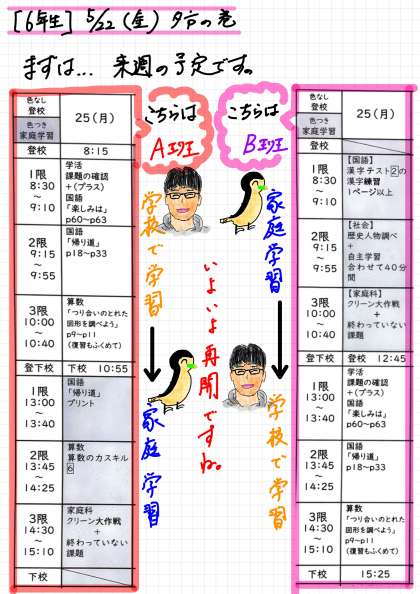 [6年生] 5/22 (金) 夕方の巻
まずは... 来週の予定です。
色なし
登校
色つき
家庭学習
25(月)
登校
8:15
1限
8:30
～
9:10
学活
課題の確認
+(プラス)
国語
「楽しみは」
p60~p63
2限
9:15
～
9:55
国語
「帰り道」
p18~p33
3限
10:00
～
10:40
算数
「つり合いのとれた
図形を調べよう」
p9~p11
(復習もふくめて)
登下校
下校 10:55
1限
13:00
～
13:40
国語
「帰り道」
プリント
2限
13:45
～
14:25
算数
算数のカスキル
6
3限
14:30
～
15:10
家庭科
クリーン大作戦
+
終わっていない
課題
下校
こちらは
A班
学校で学習
家庭学習
いよいよ再開ですね。
こちらは
B班
家庭学習
学校で学習
色なし
登校
色つき
家庭学習
25(月)
登校
1限
8:30
～
9:10
【国語】
漢字テスト2の
漢字練習
1ページ以上
2限
9:15
～
9:55
【社会】
歴史人物調べ
+
自主学習
合わせて40分
間
3限
10:00
～
10:40
【家庭科】
クリーン大作戦
+
終わっていない
課題
登下校
登校 12:45
1限
13:00
～
13:40
学活
課題の確認
+(プラス)
国語
「楽しみは」
p60~p63
2限
13:45
～
14:25
国語
「帰り道」
p18~p33
3限
14:30
～
15:10
算数
「つり合いのとれた
図形を調べよう」
p9~p11
(復習もふくめて)
下校
15:25